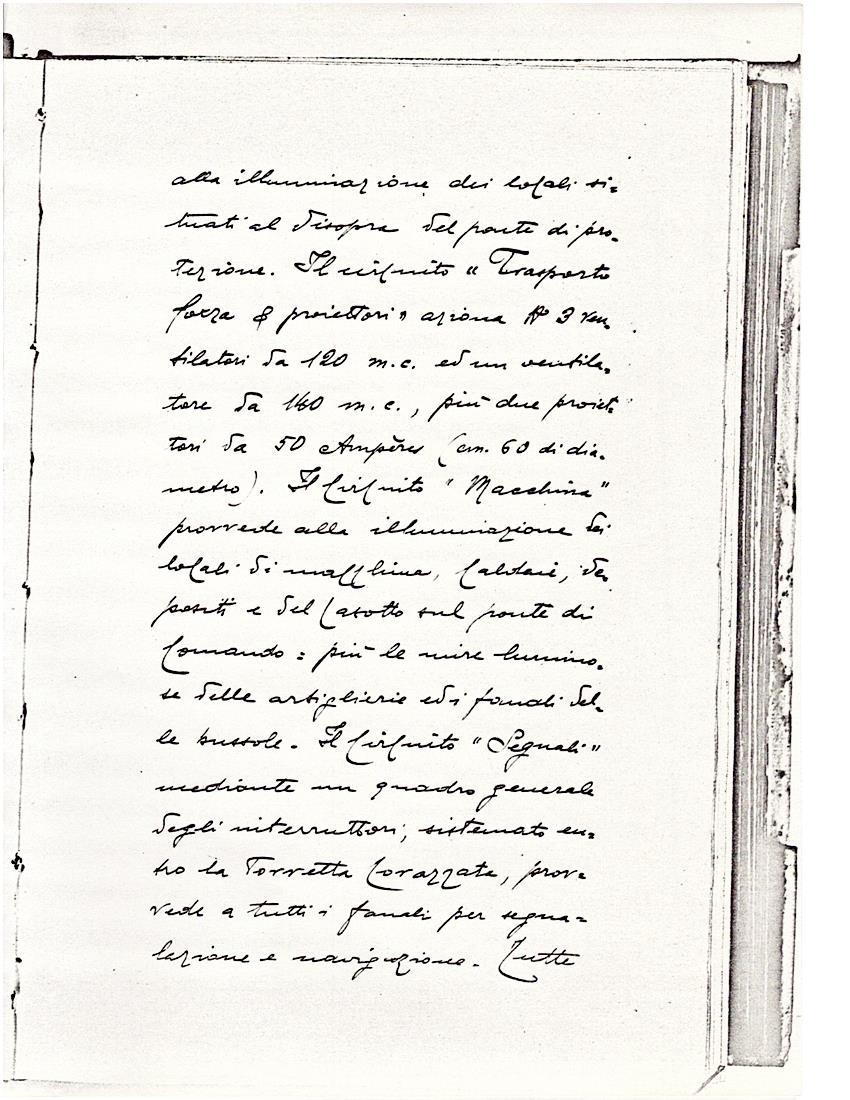 alla illuminazione dei locali si=
tuati al disopra del ponte di pro=
tezione. Il circuito "Trasporto
forza & proiettori" aziona N° 3 ven=
tilatori da 120 m.c. ed un ventila=
tore da 140 m.c., più due proiet=
tori da 50 Ampères (cm. 60 di dia=
metro). Il Circuito "Macchina"
provvede alla illuminazione dei
locali di macchina, Caldaie, de=
positi e del Casotto sul ponte di
Comando: più le mire lumino=
se delle artiglierie ed i fanali del=
le bussole. Il Circuito "Segnali"
mediante un quadro generale
degli interruttori, sistemato en=
tro la Torretta Corazzata, prov=
vede a tutti i fanali per segna=
lazione e navigazione. Tutte